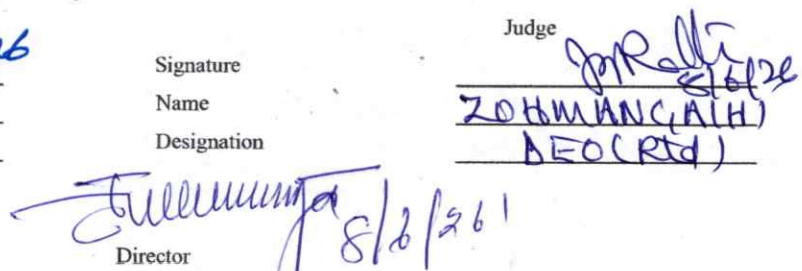 Judge
Signature 8/6/26
Name ZOHMANGAIH)
Designation DEO (Rtd)
8/6/26
Director